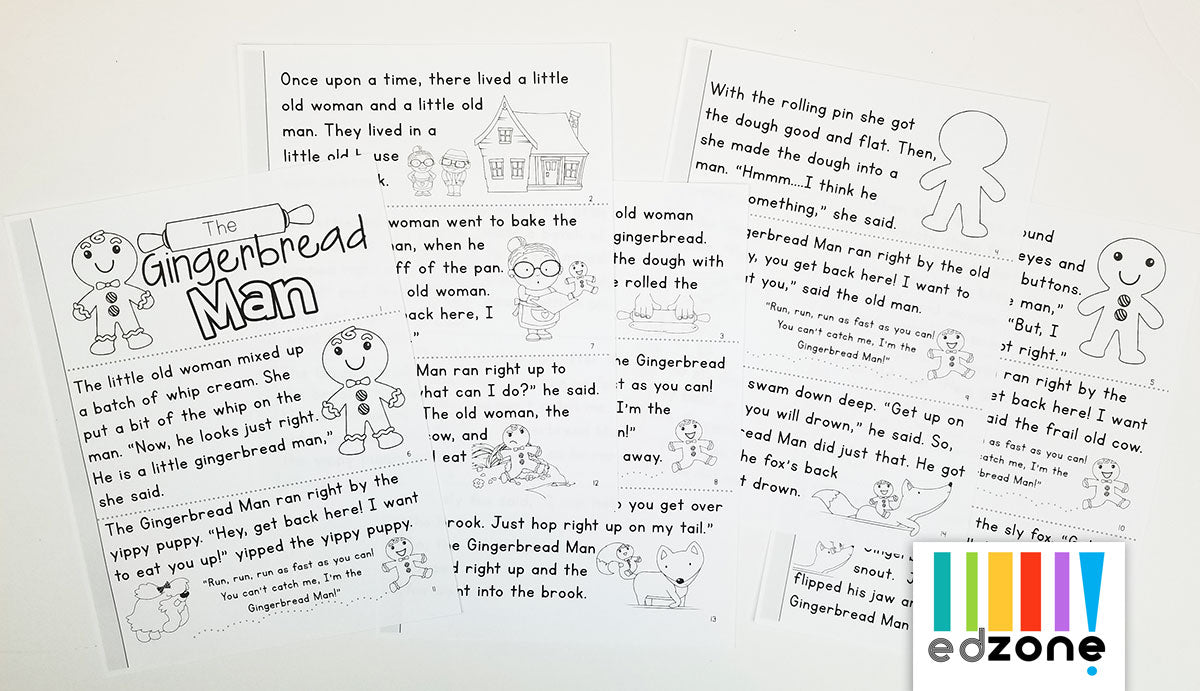 The
Gingerbread
Man
1
The little old woman mixed up
a batch of whip cream. She
put a bit of the whip on the
man. “Now, he looks just right.
He is a little gingerbread man,”
she said.
6
The Gingerbread Man ran right by the
yippy puppy. “Hey, get back here! I want
to eat you up!” yipped the yippy puppy.
“Run, run, run as fast as you can!
You can't catch me, I'm the
Gingerbread Man!”
11
Once upon a time, there lived a little
old woman and a little old
man. They lived in a
little old
use
k.
2
woman went to bake the
an, when he
ff of the pan.
old woman.
back here, I
”
7
Man ran right up to
what can I do?” he said.
The old woman, the
cow, and
eat
12
old woman
gingerbread.
the dough with
e rolled the
3
he Gingerbread
st as you can!
I'm the
n!”
away.
8
p you get over
brook. Just hop right up on my tail.”
he Gingerbread Man
d right up and the
ht into the brook.
13
With the rolling pin she got
the dough good and flat. Then,
she made the dough into a
man. “Hmmm....I think he
omething,” she said.
4
gerbread Man ran right by the old
y, you get back here! I want to
t you,” said the old man.
“Run, run, run as fast as you can!
You can't catch me, I'm the
Gingerbread Man!”
9
swam down deep. “Get up on
you will drown,” he said. So,
read Man did just that. He got
he fox's back
t drown.
14
ound
eyes and
buttons.
e man,”
“But, I
ot right.”
5
ran right by the
get back here! I want
aid the frail old cow.
as fast as you can!
catch me, I'm the
bread Man!”
10
the sly fox. “G
snout. J
flipped his jaw an
Gingerbread Man
edzone